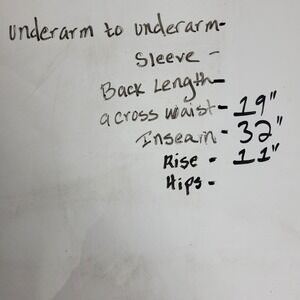 Underarm to underarm-
Sleeve -
Back Length-
across waist- 19"
Inseam - 32"
Rise - 11"
Hips -